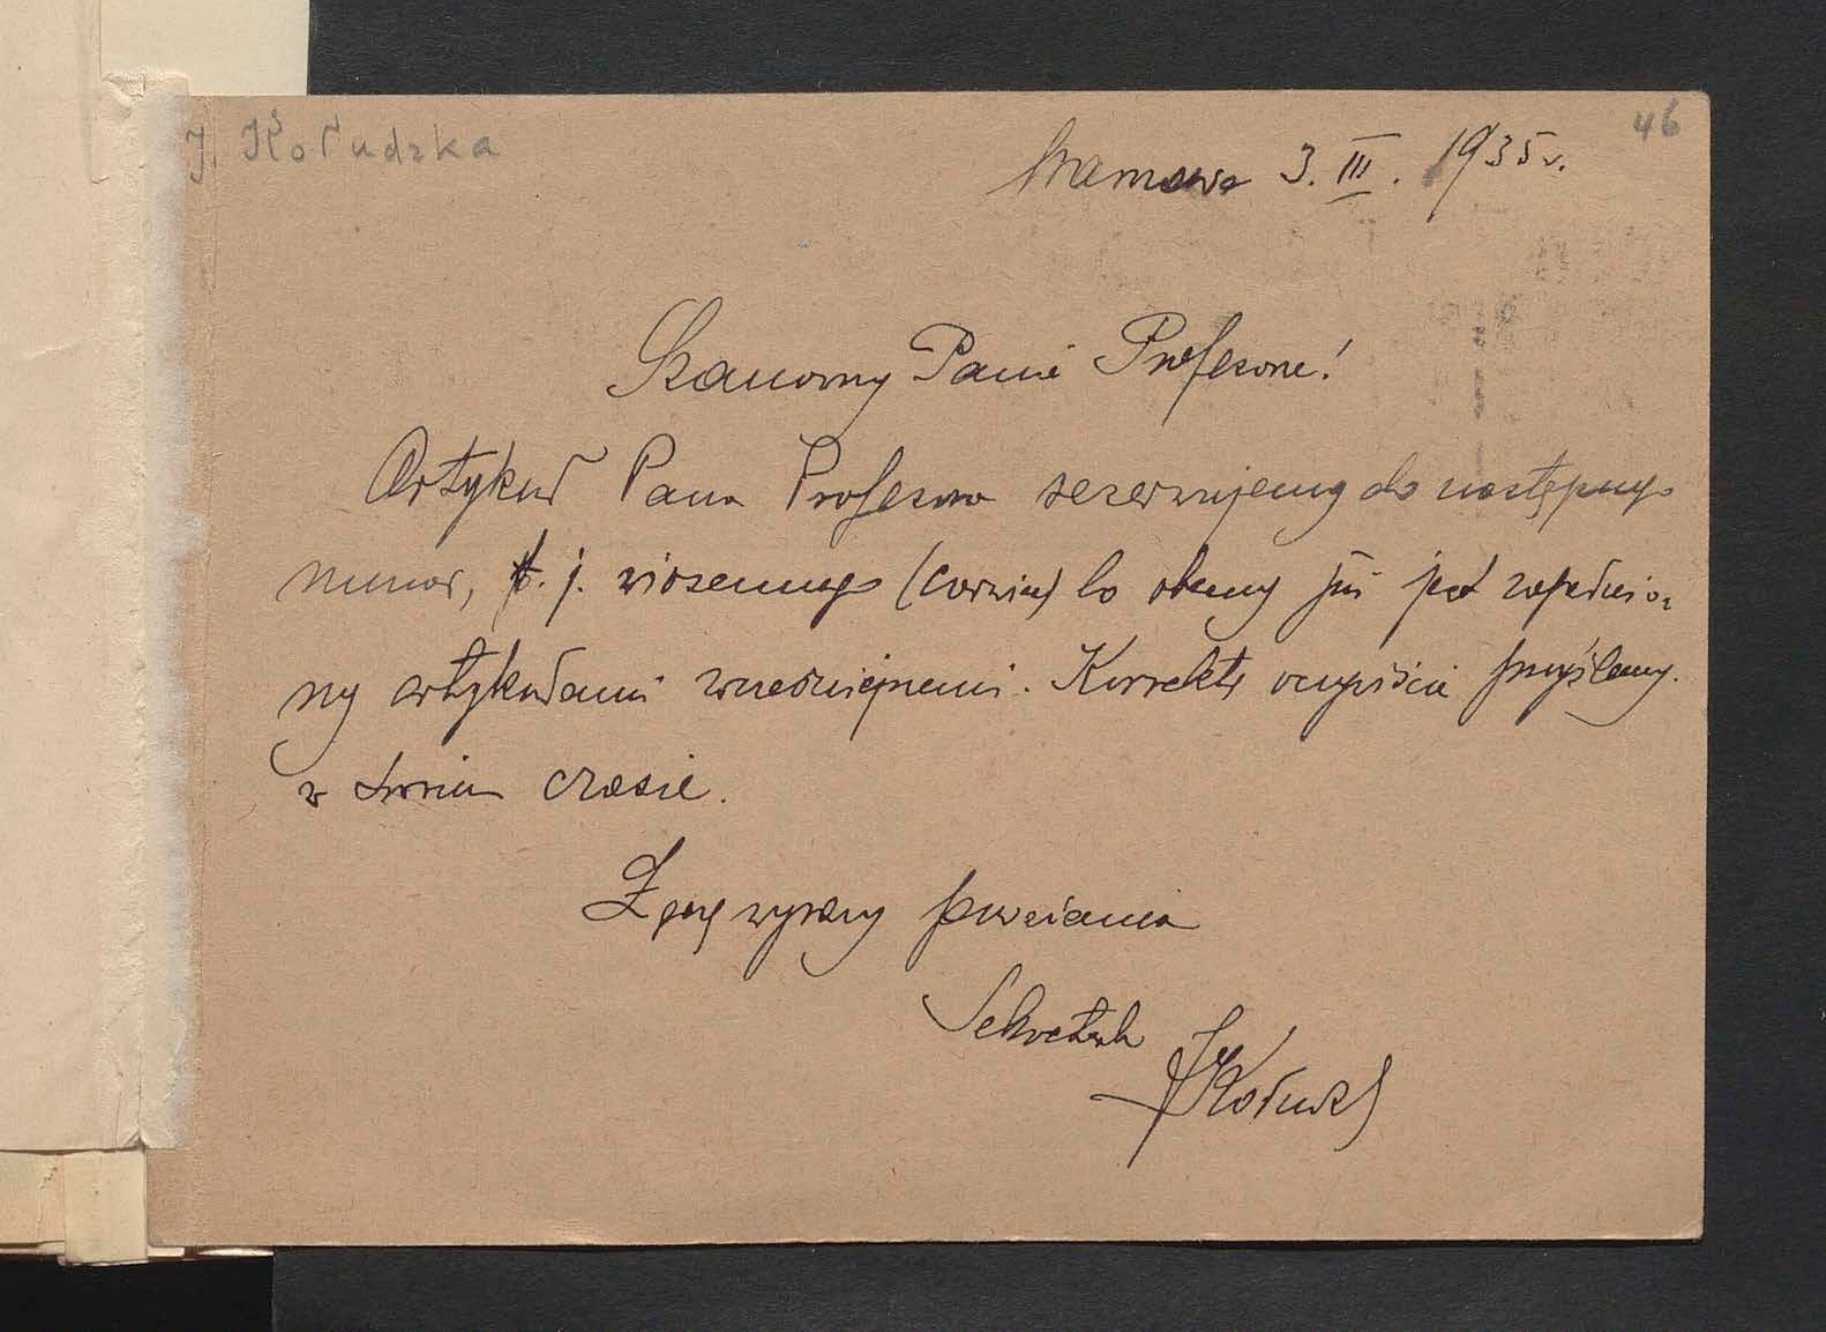 J. Kołudzka
46
Warszawa 3. III. 1935 r.
Szanowny Panie Profesorze!
Artykuł Pana Profesora rezerwujemy do następnego
numeru, t. j. wiosennego (czerwiec) bo obecny już jest zapełnio-
ny artykułami wcześniejszemi. Korrektę oczywiście prześlemy
w swoim czasie.
Łączę wyrazy poważania
Sekretarz
JKołudz